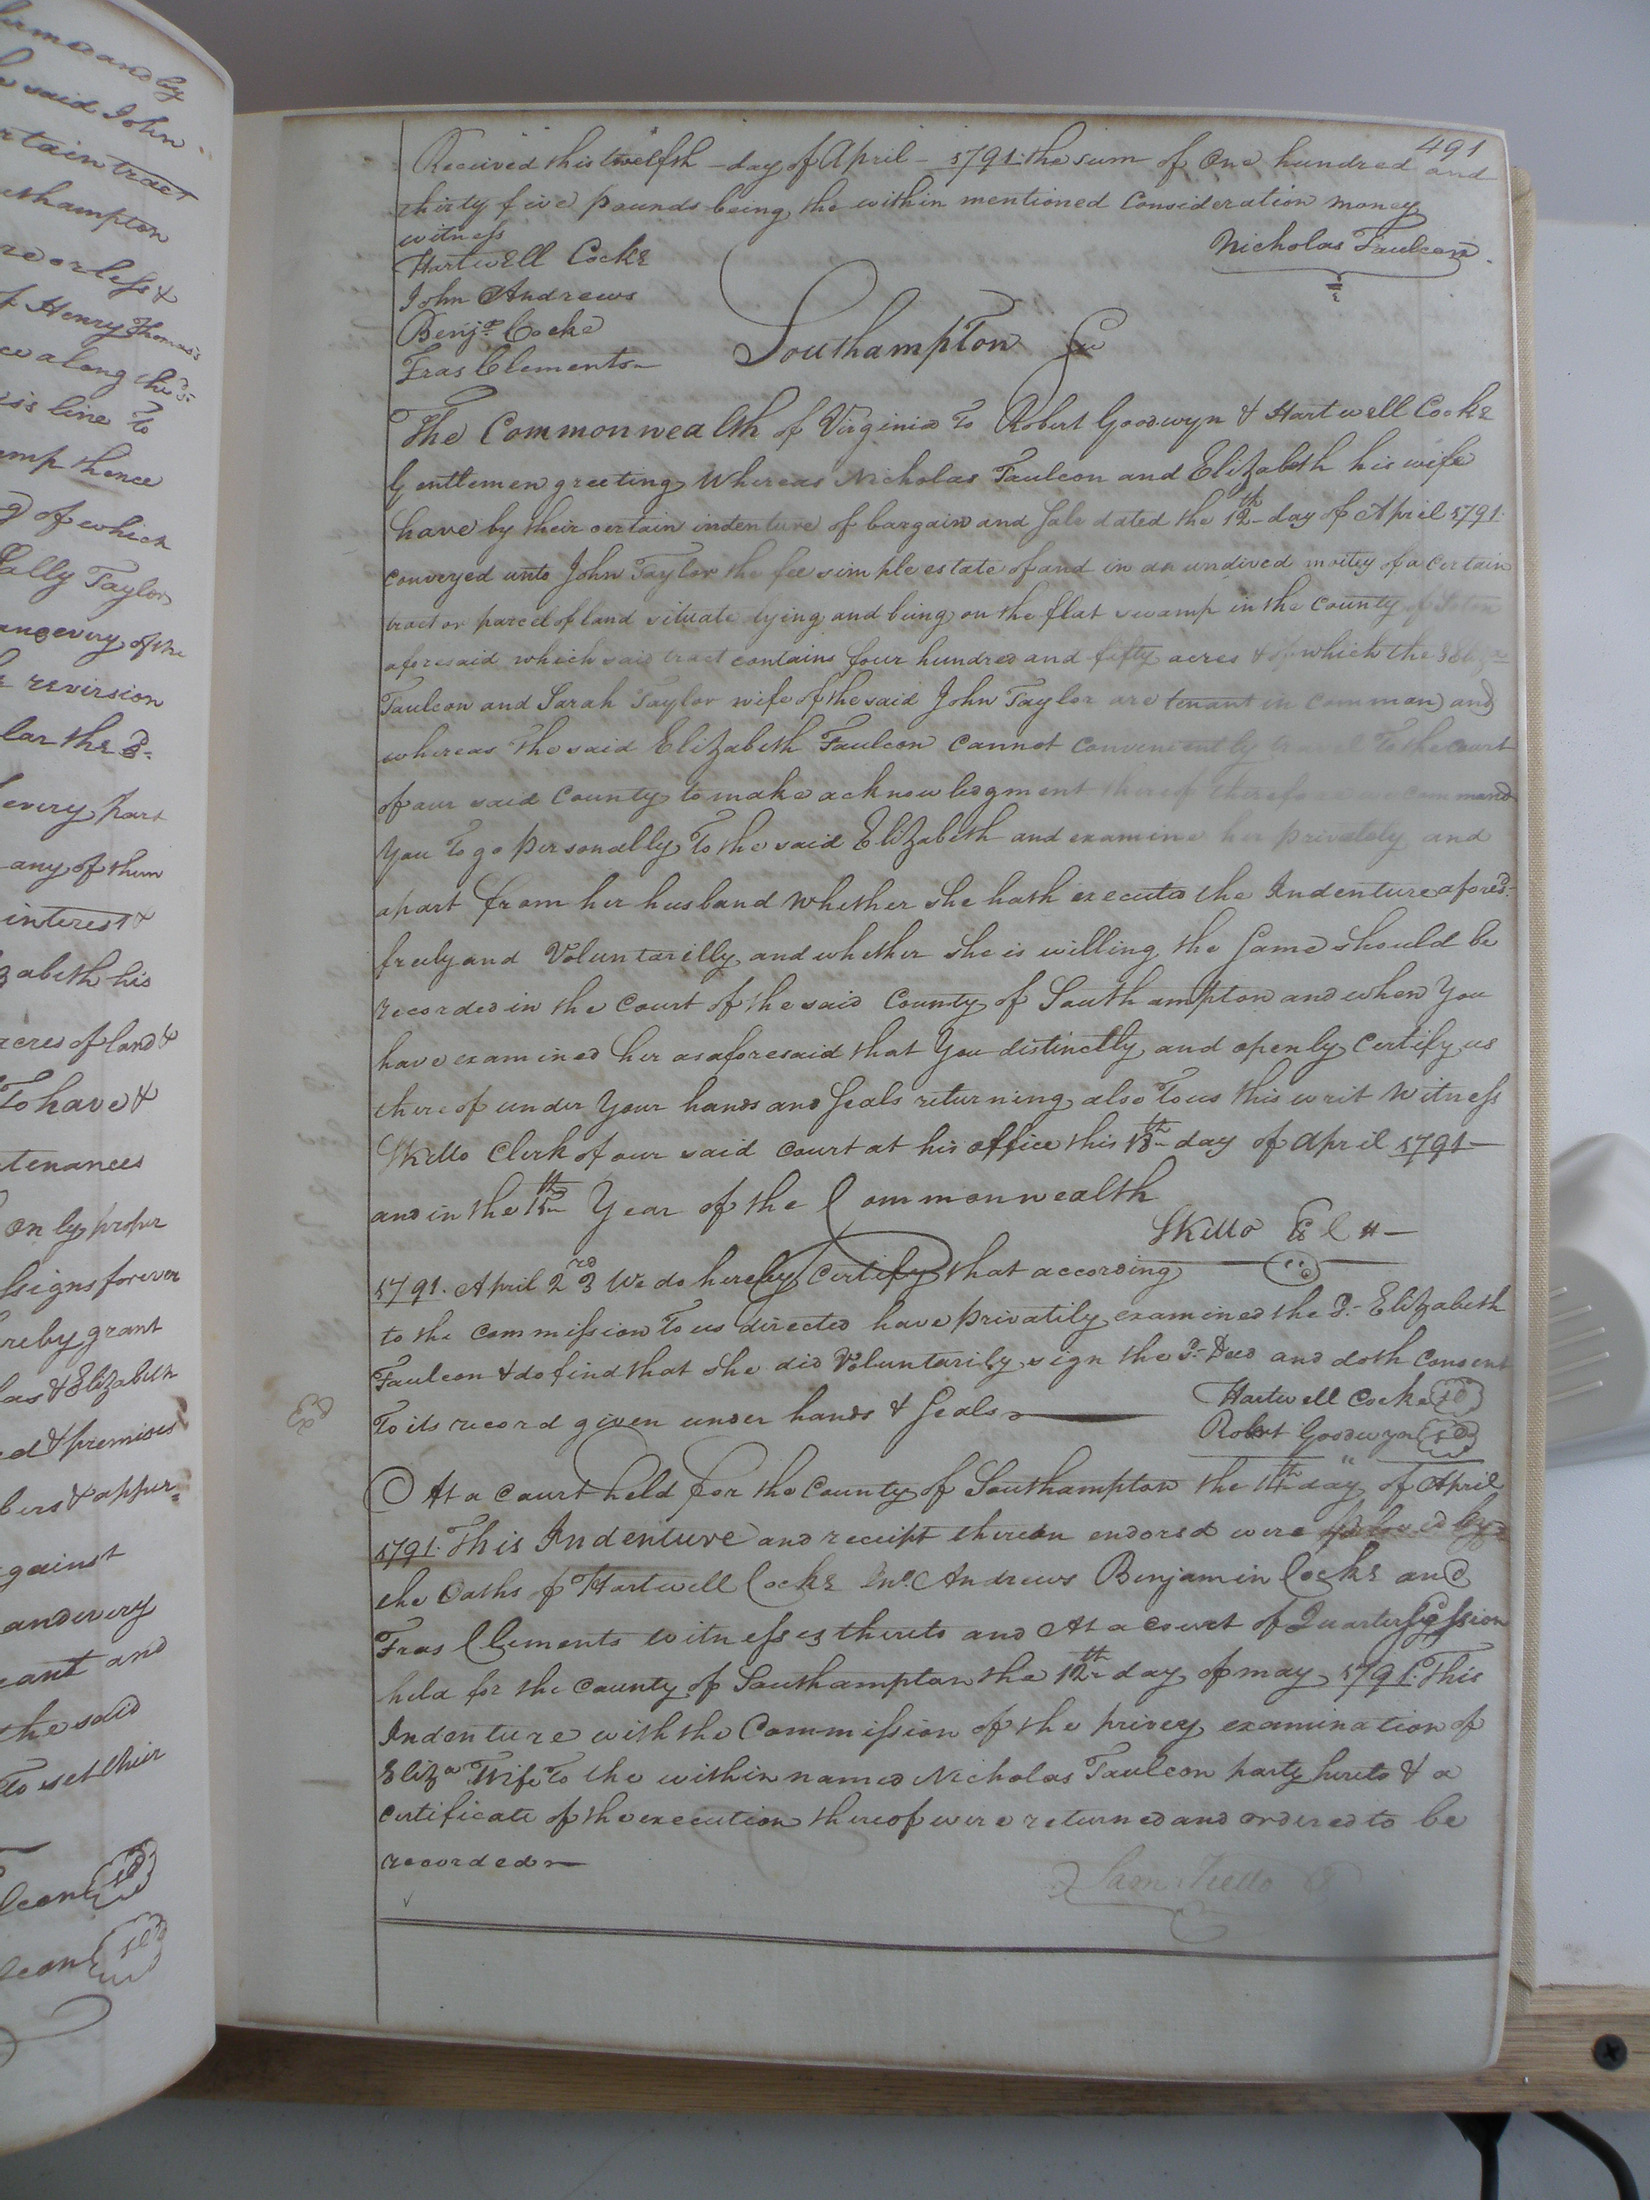 ame and by
e said John
rtain tract
uthampton
re or less &
f Henry Thomas's
w along the sd
is's line To
mp thence
g of which
Sally Taylor
and every of the
revirsion
lar the sd
every part
any of them
interest &
zabeth his
acres of land &
To have &
tenances
only proper
ssigns forever
reby grant
las & Elizabeth
ed & premises
bers & appur=
gainst
and every
rant and
the said
To set their
lcon sd
lcon sd
491
Received this twelfth day of April 1791 the sum of One hundred and
thirty five pounds being the within mentioned Consideration money
witness
Nicholas Faulcon
Hartwell Cocke
John Andrews
Benja Cocke
Fras Clements
Southampton Sc
The Commonwealth of Virginia To Robert Goodwyn & Hartwell Cocke
Gentlemen greeting Whereas Nicholas Faulcon and Elizabeth his wife
have by their certain indenture of bargain and Sale dated the 12th day of April 1791
conveyed unto John Taylor the fee simple estate of and in an undived moitey of a certain
tract or parcel of land situate lying and being on the flat swamp in the County of
aforesaid which said tract contains four hundred and fifty acres & of which the sd
Faulcon and Sarah Taylor wife of the said John Taylor are tenant in common and
whereas The said Elizabeth Faulcon cannot conveniently travel To the court
of our said County to make acknowledgment thereof command
You To go personally To the said Elizabeth and examine her privately and
apart from her husband Whether She hath executed the Indenture aforesd
freely and Voluntarilly and whether she is willing the Same should be
recorded in the Court of the said County of Southampton and when You
have examined her as aforesaid that You distinctly and openly Certify us
thereof under Your hands and Seals returning also To us this writ Witness
SKello Clerk of our said Court at his office this 13th day of April 1791
and in the 15th Year of the Commonwealth
SKello
1791. April 23rd We do hereby Certify that according
to the Commission To us directed have privatily examined the sd Elizabeth
Faulcon & do find that she did Voluntarily sign the sd Deed and doth Consent
Exd
To its record given under hands & Seals
Hartwell Cocke sd
Robert Goodwyn sd
At a Court held for the County of Southampton the 14th day of April
1791. This Indenture and receipt thereon endorsd were by
the Oaths of Hartwell Cocke Jno. Andrews Benjamin Cocke and
Fras Clements witnesses thereto and At a court of Quarterly Session
held for the County of Southampton the 12th day of may 1791. This
Indenture with the Commission of the privey examination of
Eliza Wife To the within named Nicholas Faulcon party hereto & a
Certificate of the execution thereof were returned and ordered to be
recorded
Sam Kello